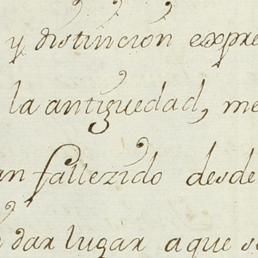 y distincion expre
la antiguedad, me
an fallezido desde
dar lugar a que se